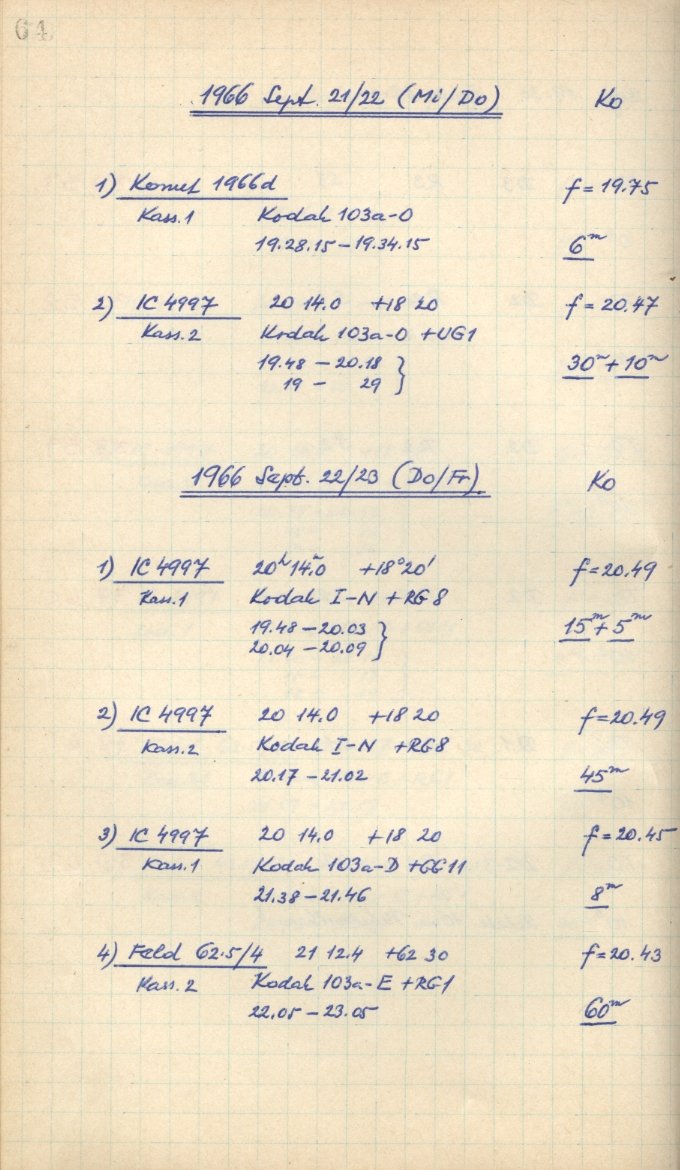 64
1966 Sept. 21/22 (Mi/Do) Ko
1) Komet 1966d f = 19.75
Kass.1 Kodak 103a-O
19.28.15 – 19.34.15 6m
2) IC 4997 20 14.0 +18 20 f = 20.47
Kass.2 Kodak 103a-O + UG1
19.48 – 20.18 } 30m + 10m
19 – 29
1966 Sept. 22/23 (Do/Fr) Ko
1) IC 4997 20h 14m.0 +18°20' f = 20.49
Kass.1 Kodak I-N + RG8
19.48 – 20.03 } 15m + 5m
20.04 – 20.09
2) IC 4997 20 14.0 +18 20 f = 20.49
Kass.2 Kodak I-N + RG8
20.17 – 21.02 45m
3) IC 4997 20 14.0 +18 20 f = 20.45
Kass.1 Kodak 103a-D + GG11
21.38 – 21.46 8m
4) Feld 62.5/4 21 12.4 +62 30 f = 20.43
Kass.2 Kodak 103a-E + RG1
22.05 – 23.05 60m